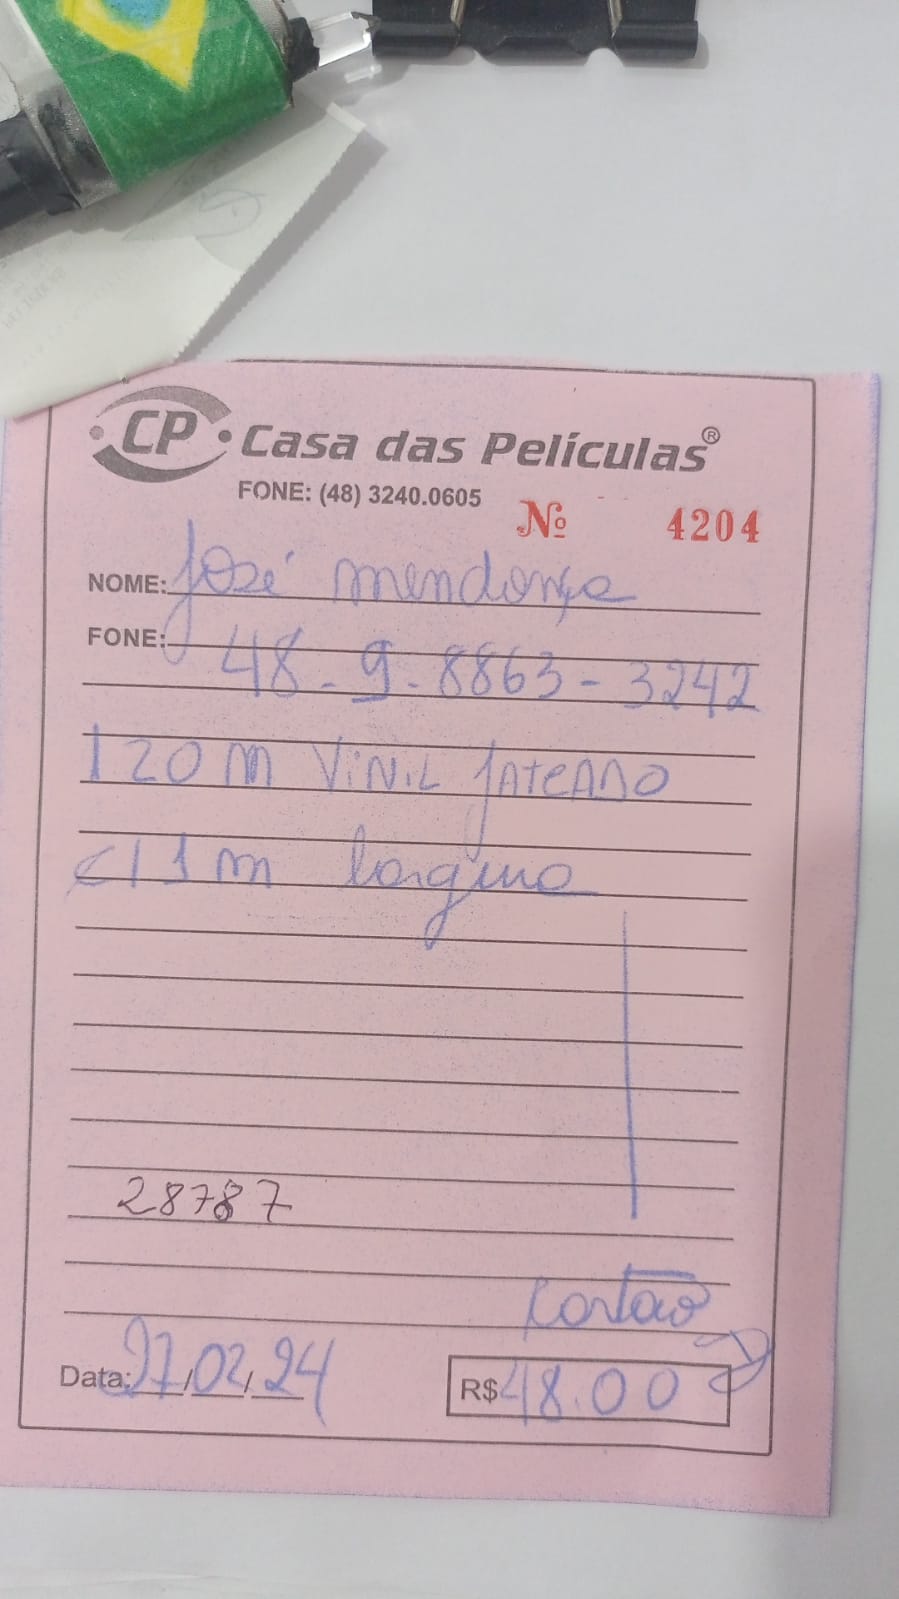 CP Casa das Películas®
FONE: (48) 3240.0605
Nº 4204
NOME: José Mendonça
FONE: 48-9-8863-3242
120 m VINIL JATEADO
c/ 1 m largura
28787
Cartão
Data: 27/02/24 R$ 48.00